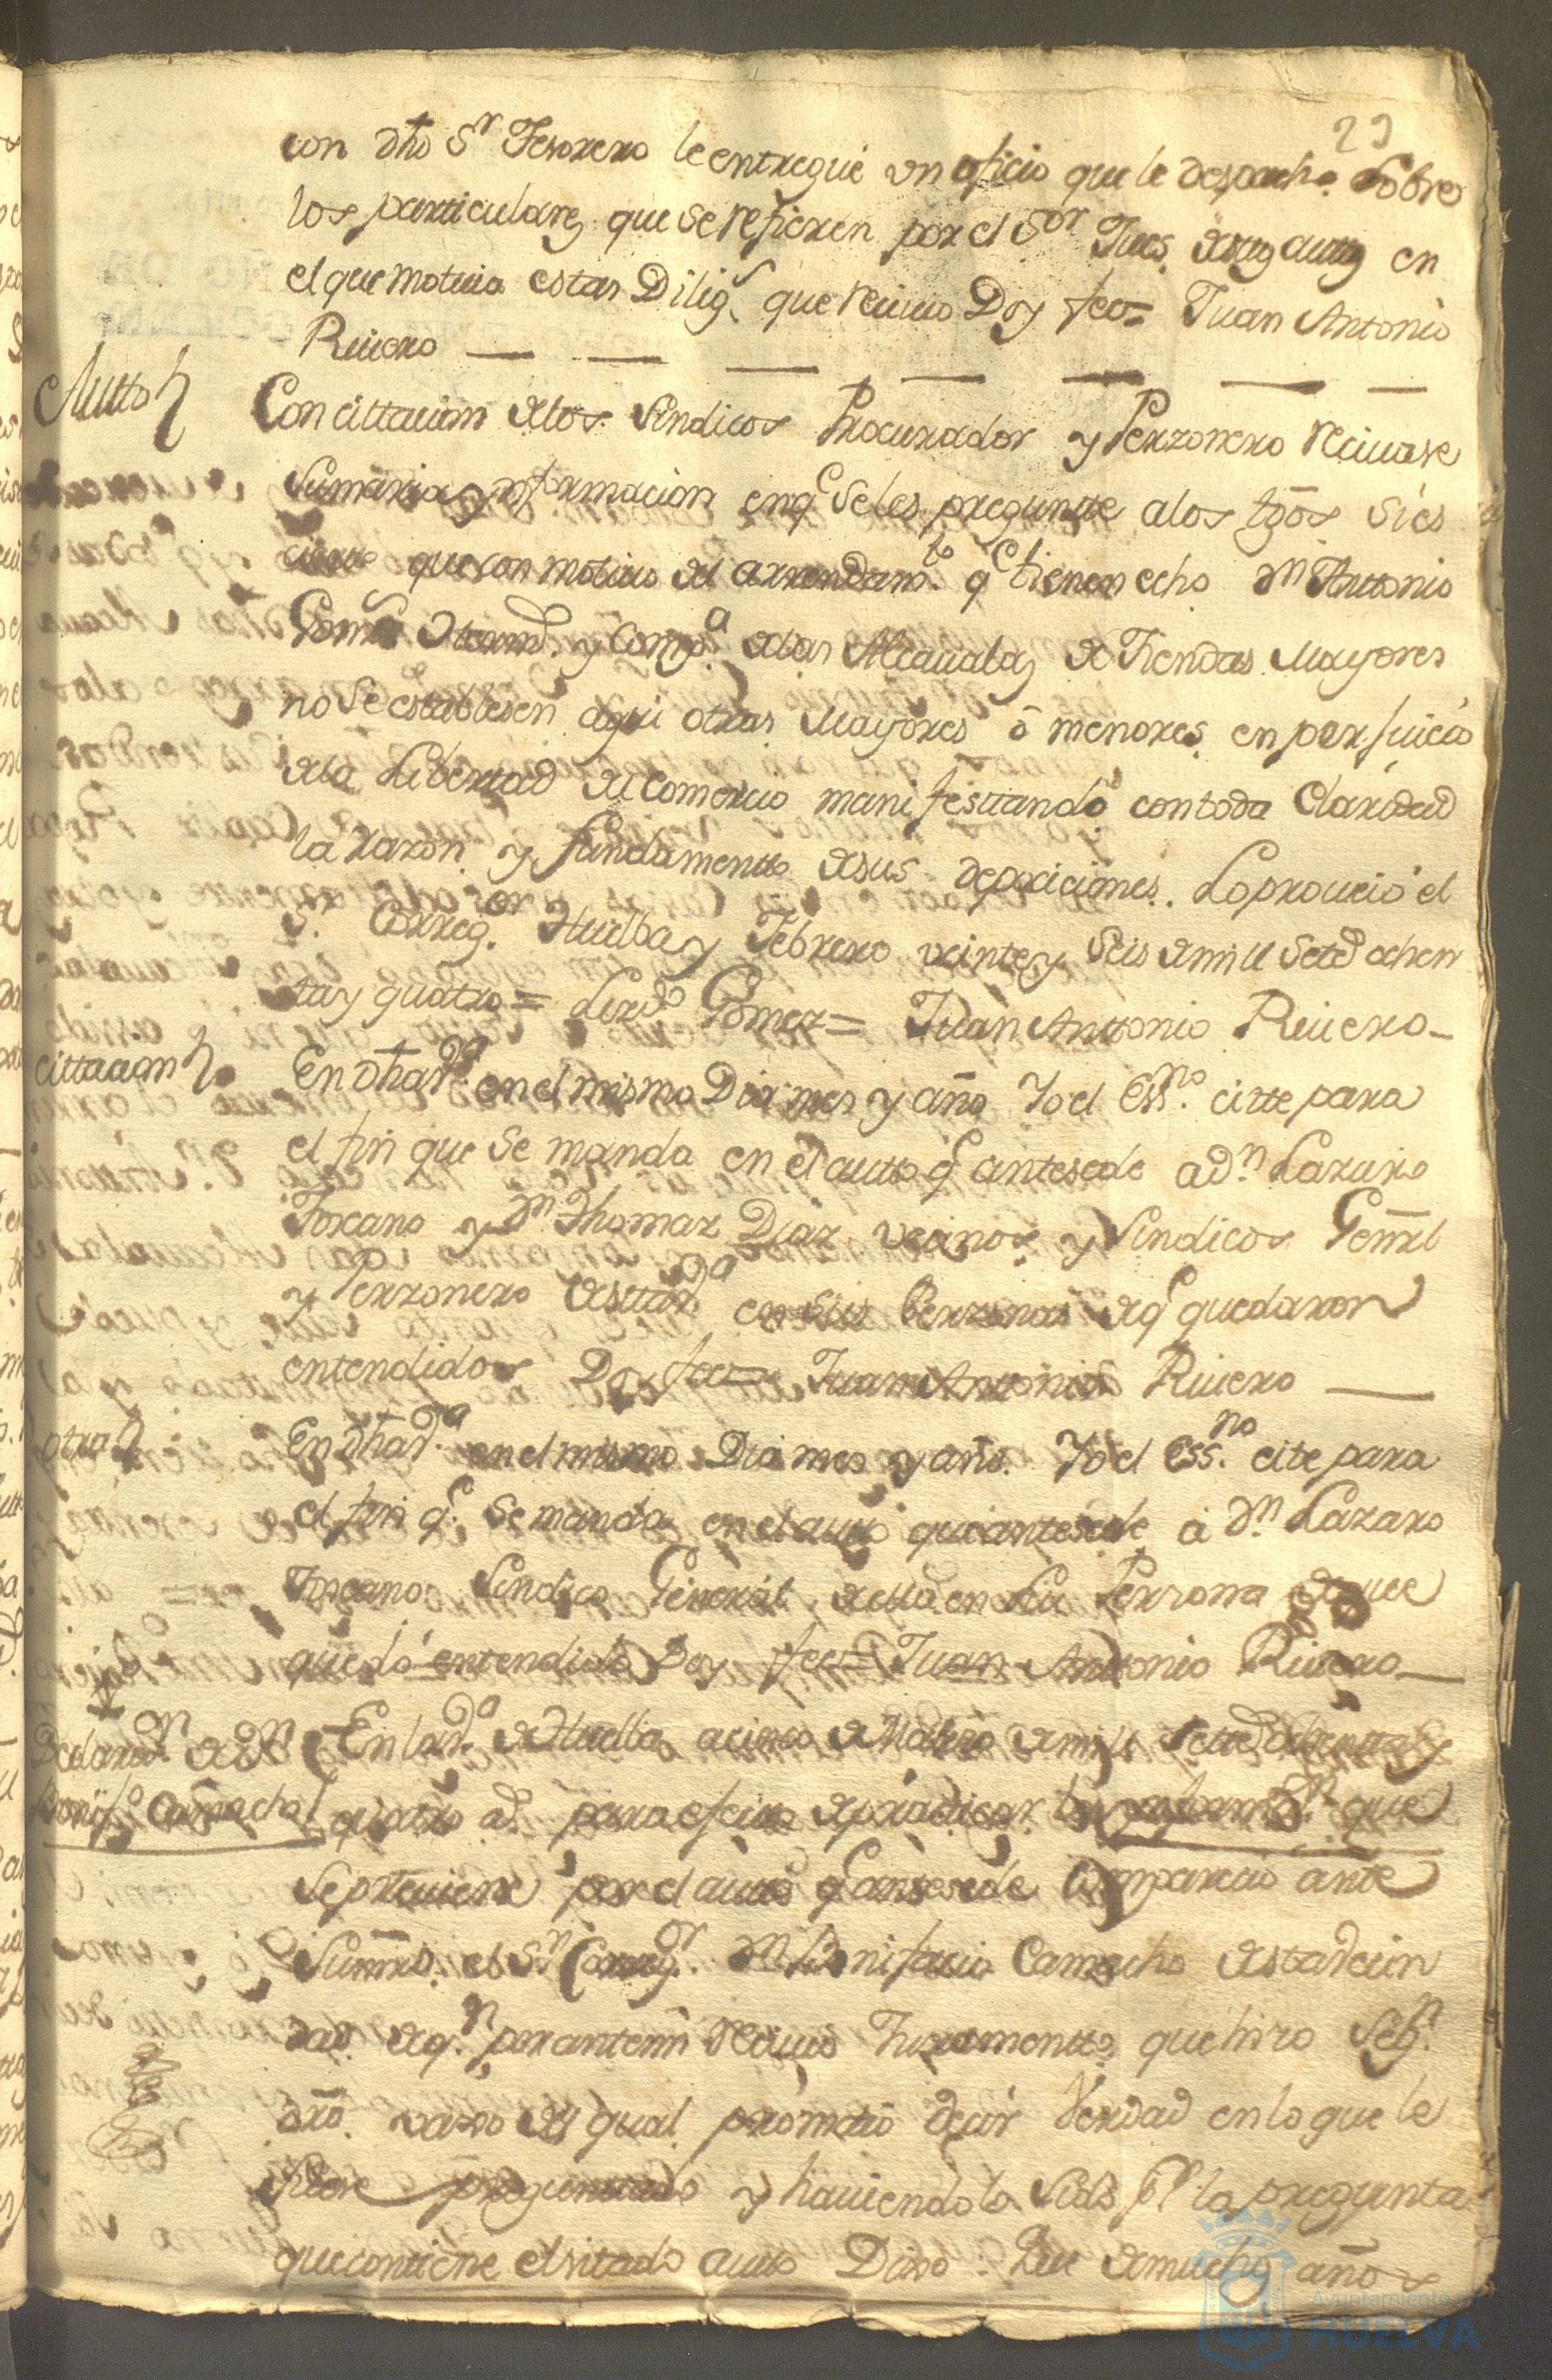 29
con dho Sr Tesorero le entregué un oficio que le despacho sobre
los particulares que se refieren por el Sor Jues en
el que motiva estas Diligs que reciuio Doy fee = Juan Antonio
Riuero
Autto
Con cittacion de los Sindicos Procurador y Perzonero reciuase
sumaria ynformacion en qe se les preguntte a los tgos si es
cierto que con motiuo del arrendamto qe tienen echo Dn Anttonio
Gomes y Compa de las Alcaualas de Tiendas Mayores
no se establesen aqui otras Mayores ó menores en perjuicio
de la Libertad del Comercio manifesttando con toda Claridad
la razon y fundamentto de sus deposiciones. Lo proueió el
Sr Corregor Huelba y Febrero veinte y seis de mill seted ochen
ta y quatro = Lizdo Gomez = Juan Anttonio Riuero
cittacion
En dha va en el mismo Dia mes y año Yo el Essno citte para
el fin que se manda en el autto qe antesede a dn Lazaro
Toscano y Dn Thomas Diaz vecinos y Sindicos Genrl
y Perzonero de estta va en sus Perzonas de qe quedaron
entendidos Doy fee = Juan Anttonio Riuero
otra
En dha va en el mismo Dia mes y año Yo el Essno cite para
el fin qe se manda en el autto que antesede á Dn Lazaro
Toscano Sindico General de ella en su Perzona de que
quedó entendido Doy fee = Juan Anttonio Riuero
Declaraon de Dn
Bonifo Camacho
En la va de Huelba a cinco de Marzo de mill setted ochentta y
quatro as para efecto de practicar la ynformon que
se preuiene por el autto qe antesede Comparecio ante
su mrd el Sr Corregor Dn Bonifacio Camacho de esta vecin
dad de qn por antemi reciuió Juramentto que hizo segn
dro vaxo del qual prometió decir Verdad en lo que le
fuere preguntado y hauiendolo sido pr la pregunta
que contiene el sitado autto Dixo: Que de muchos años
Ayuntamiento
HUELVA